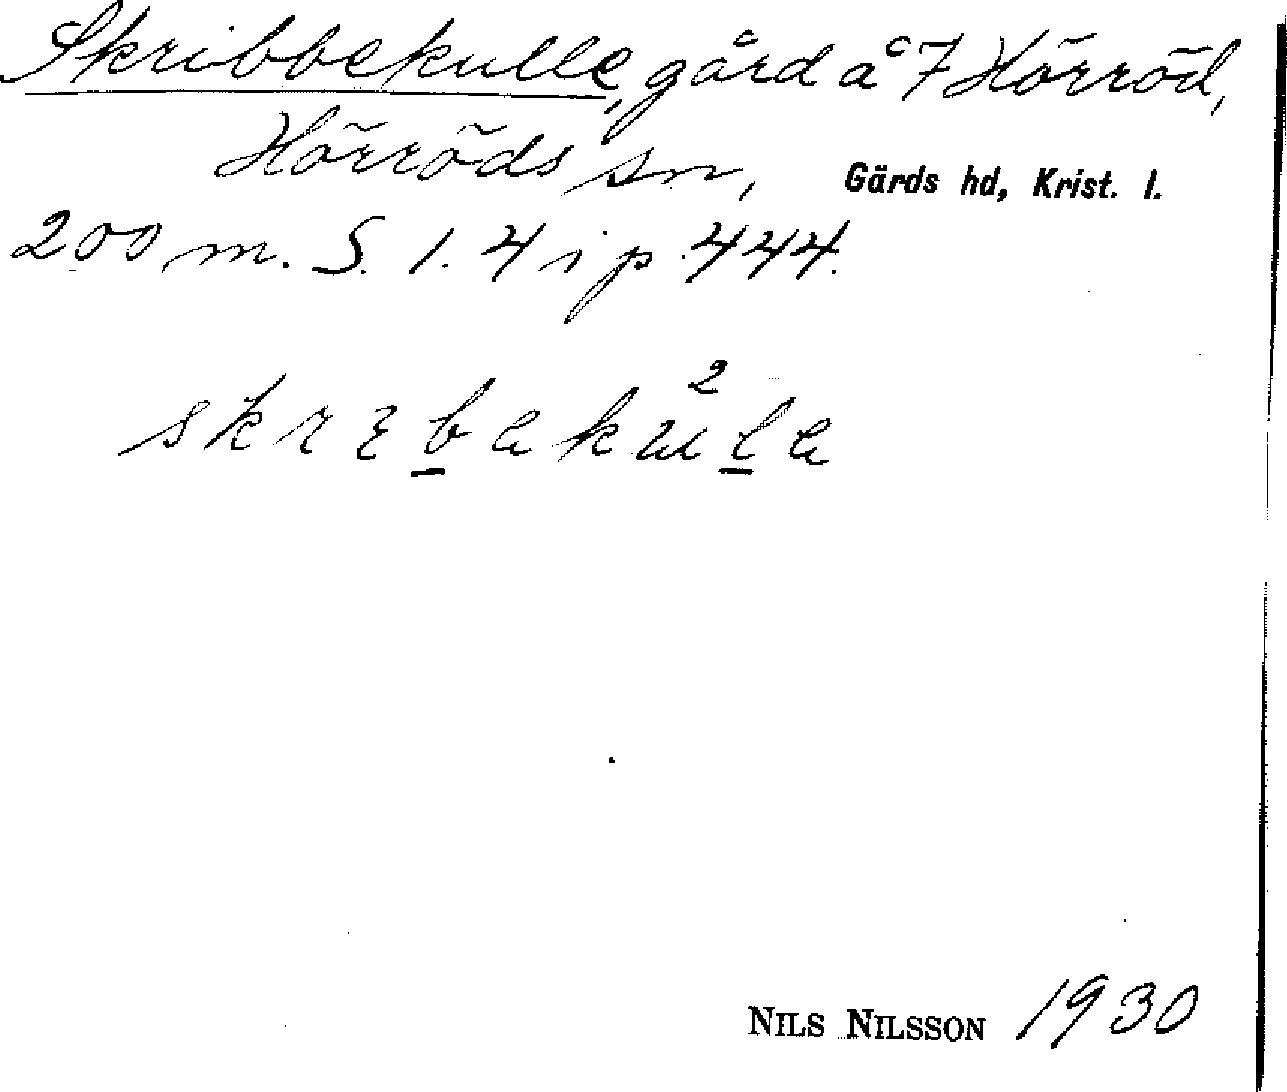 Skribbekulle, gård å 7 Hörröd,
Hörröds sn, Gärds hd, Krist. l.
200 m. S. 1. 4 i p 444.
skrɛb̲eku²l̲e
NILS NILSSON 1930